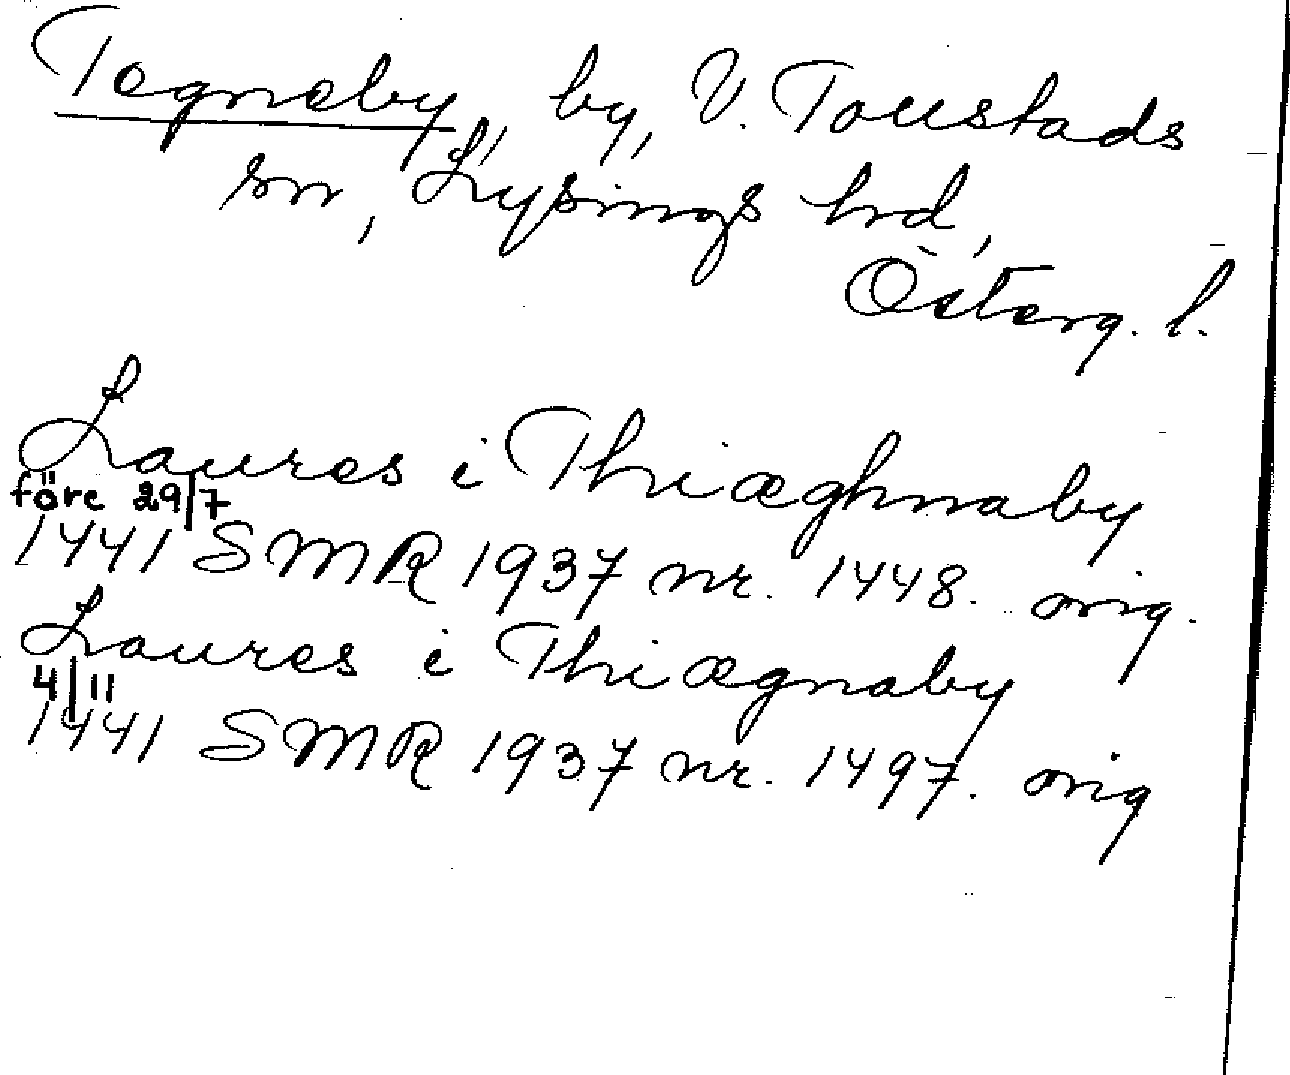 Tegneby, by, V. Tollstads
sn, Lysings hrd,
Österg. l.
Laures i Thiæghnaby
före 29/7
1441 SMR 1937 nr. 1448. orig.
Laures i Thiægnaby
4/11
1441 SMR 1937 nr. 1497. orig